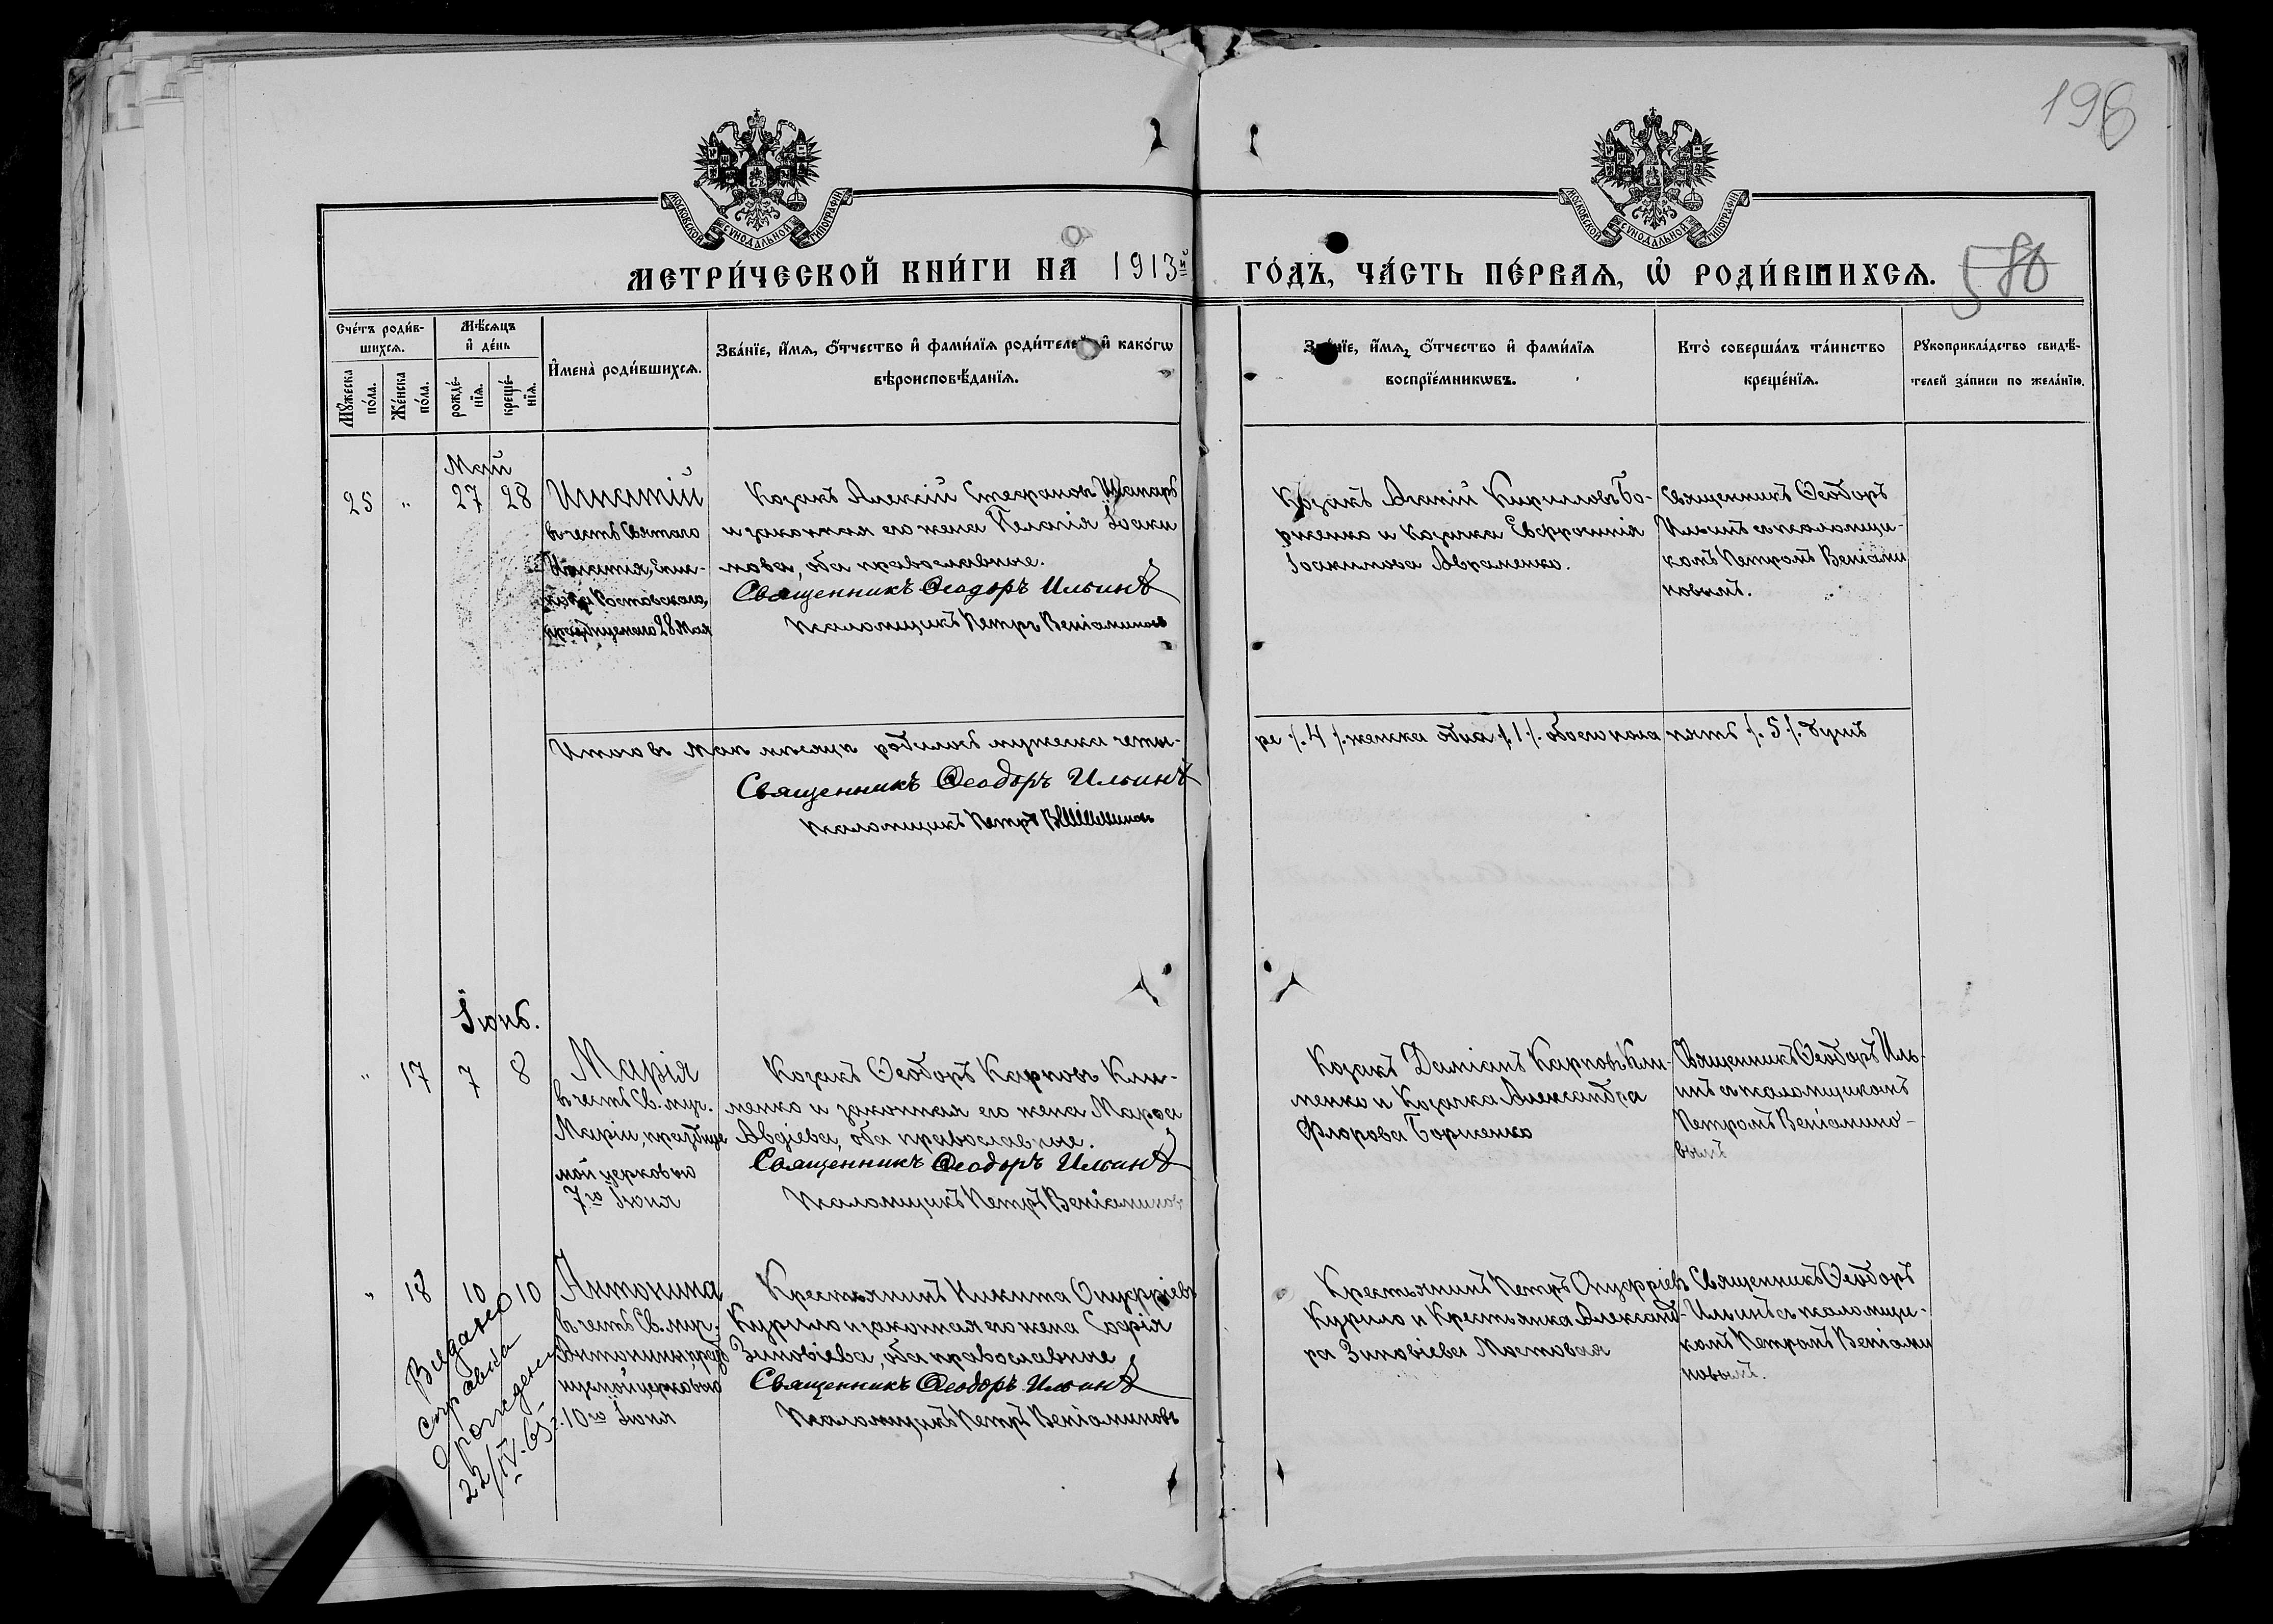 196
МОСКОВСКОЙ СУНОДАЛЬНОЙ ТИПОГРАФІИ.
МОСКОВСКОЙ СУНОДАЛЬНОЙ ТИПОГРАФІИ.
МЕТРИ́ЧЕСКОЙ КНИ́ГИ НА 1913й ГО́ДЪ, ЧА́СТЬ ПЕ́РВАѦ, Ѡ РОДИ́ВШИХСѦ. 580
Сче́тъ роди́в-
шихсѧ.
Мꙋ́жеска
по́ла.
Же́нска
по́ла.
Мѣ́сѧцъ
и҆ де́нь
рожде́-
нїѧ.
креще́-
нїѧ.
И҆мена̀ роди́вшихсѧ.
Зва́нїе, и҆́мѧ, ѻ҆́тчество и҆ фамѝлїѧ роди́телей и҆ како́гѡ
вѣроисповѣ́данїѧ.
Зва́нїе, и҆́мѧ, ѻ҆́тчество и҆ фамѝлїѧ
воспрїе́мникѡвъ.
Кто̀ соверша́лъ та́инство
креще́нїѧ.
Рꙋкоприкла́дство свидѣ́-
телей за́писи по жела́нїю.
Май
25 " 27 28 Игнатій
въ честь Святаго
Игнатія, Епис-
копа Ростовскаго,
празднуемаго 28 Мая
Козакъ Алексій Стефановъ Шапарь
и законная его жена Пелагія Іоаки
мова, оба православные.
Священникъ Ѳеодоръ Ильинъ
Псаломщикъ Петръ Веніаминовъ
Козакъ Агапій Кирилловъ Бо-
рисенко и Козачка Евфросинія
Іоакимова Авраменко.
Священникъ Ѳеодоръ
Ильинъ съ псаломщи-
комъ Петромъ Веніами
новымъ.
Итого въ маѣ мѣсяцѣ родилось мужеска четы-
ре /.4 /. женска одна /.1 /. обоего пола пять /. 5 /. душъ
Священникъ Ѳеодоръ Ильинъ
Псаломщикъ Петръ Веніаминовъ
Іюнь.
" 17 7 8 Марія
въ честь Св. муч.
Маріи, празднуе
мой церковью
7го Іюня
Козакъ Ѳеодоръ Карповъ Кли-
менко и законная его жена Марѳа
Авдіева, оба православные.
Священникъ Ѳеодоръ Ильинъ
Псаломщикъ Петръ Веніаминовъ
Козакъ Даміанъ Карповъ Кли-
менко и Козачка Александра
Флорова Борисенко
Священникъ Ѳеодоръ Иль-
инъ съ псаломщикомъ
Петромъ Веніамино-
вымъ
" 18 10 10 Антонина
въ честь Св. муч.
Антонины, празд
нуемой церковью
10го Іюня
Крестьянинъ Никита Онуфріевъ
Курило и законная его жена Софія
Зиновіева, оба православные
Священникъ Ѳеодоръ Ильинъ
Псаломщикъ Петръ Веніаминовъ
Крестьянинъ Петръ Онуфріевъ
Курило и Крестьянка Александ-
ра Зиновіева Мостовая
Священникъ Ѳеодоръ
Ильинъ съ псаломщи-
комъ Петромъ Веніами
новымъ.
Видано
справка
о рождении
22/IV-65 г.